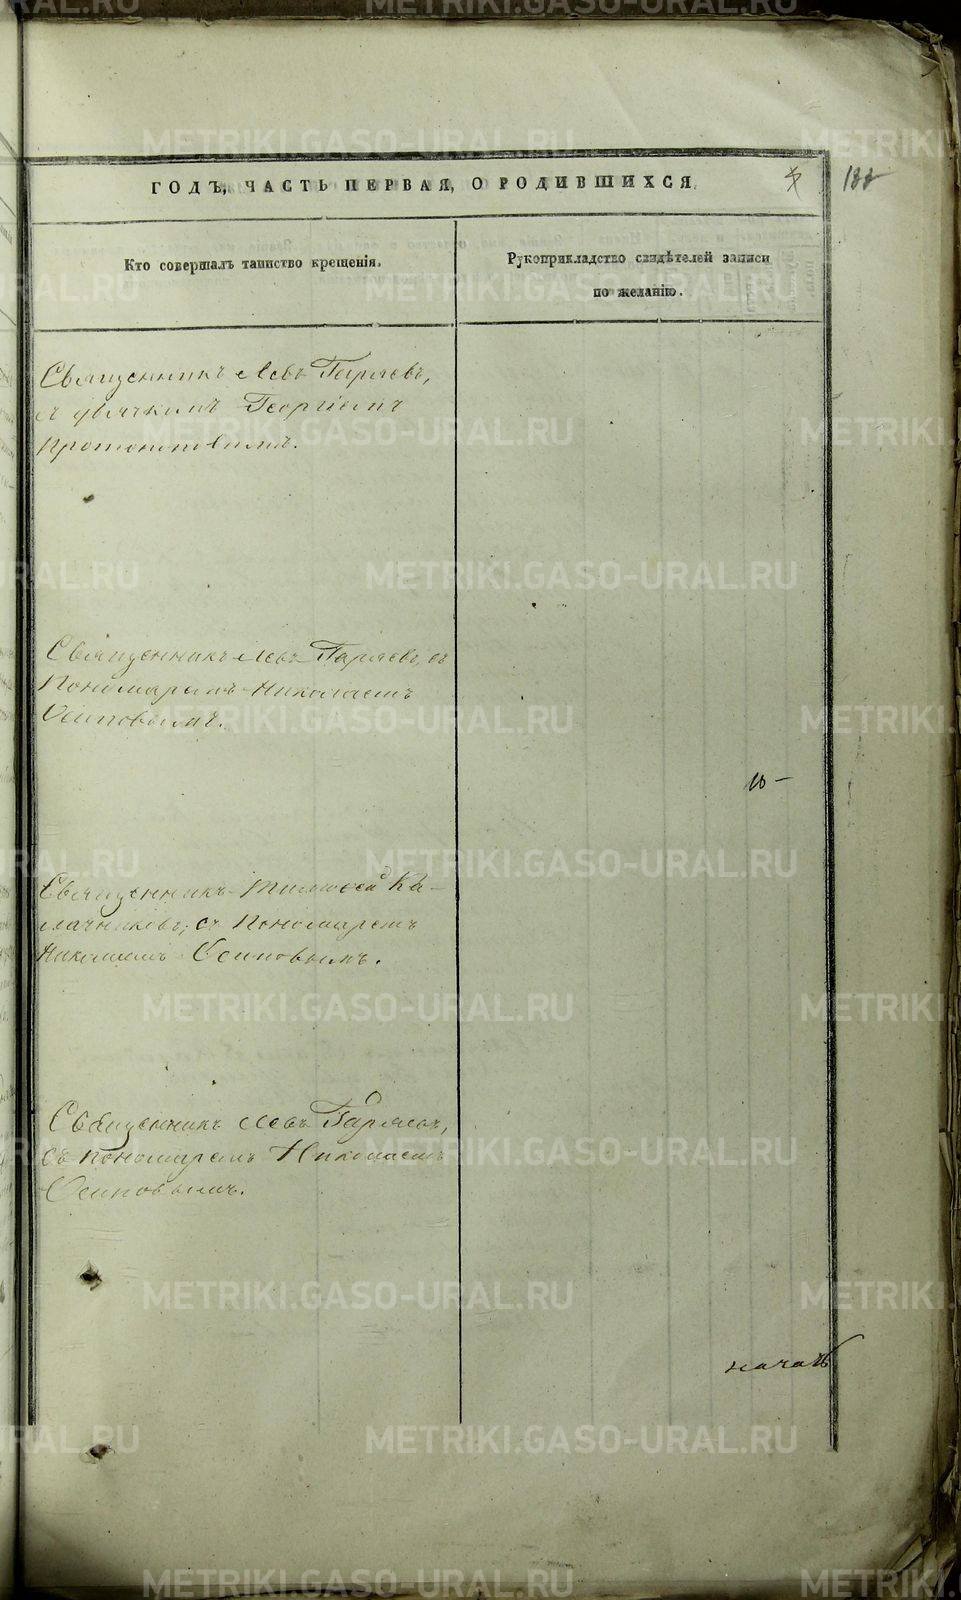 ГОДЪ, ЧАСТЬ ПЕРВАЯ, О РОДИВШИХСЯ.
Кто совершалъ таинство крещенія.
Рукоприкладство свидѣтелей записи
по желанію.
Священникъ Левъ Гаряевъ,
съ дьячкимъ Георгіемъ
Протопоповымъ.
Священникъ Левъ Гаряевъ, съ
Пономаремъ Николаемъ
Осиповымъ.
10 –
Священникъ Тимоѳей Ка-
лачниковъ, съ Пономаремъ
Николаемъ Осиповымъ.
Священникъ Левъ Гаряевъ,
съ пономаремъ Николаемъ
Осиповымъ.
METRIKI.GASO-URAL.RU